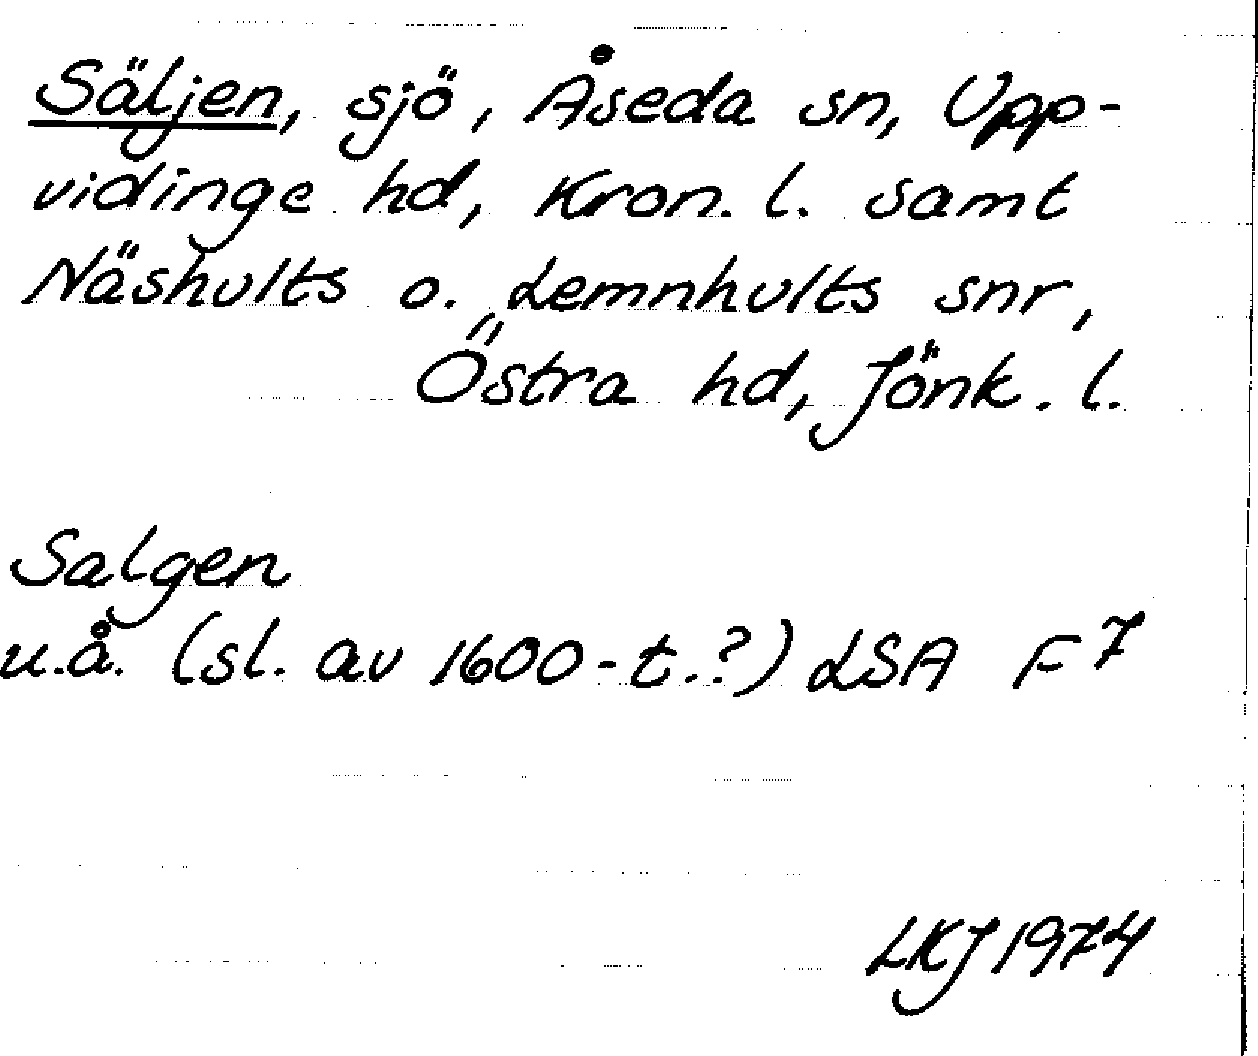 Säljen, sjö, Åseda sn, Upp-
vidinge hd, Kron. l. samt
Näshults o. Lemnhults snr,
Östra hd, Jönk. l.
Salgen
u.å. (sl. av 1600-t.?) LSA F 7
LKJ 1974